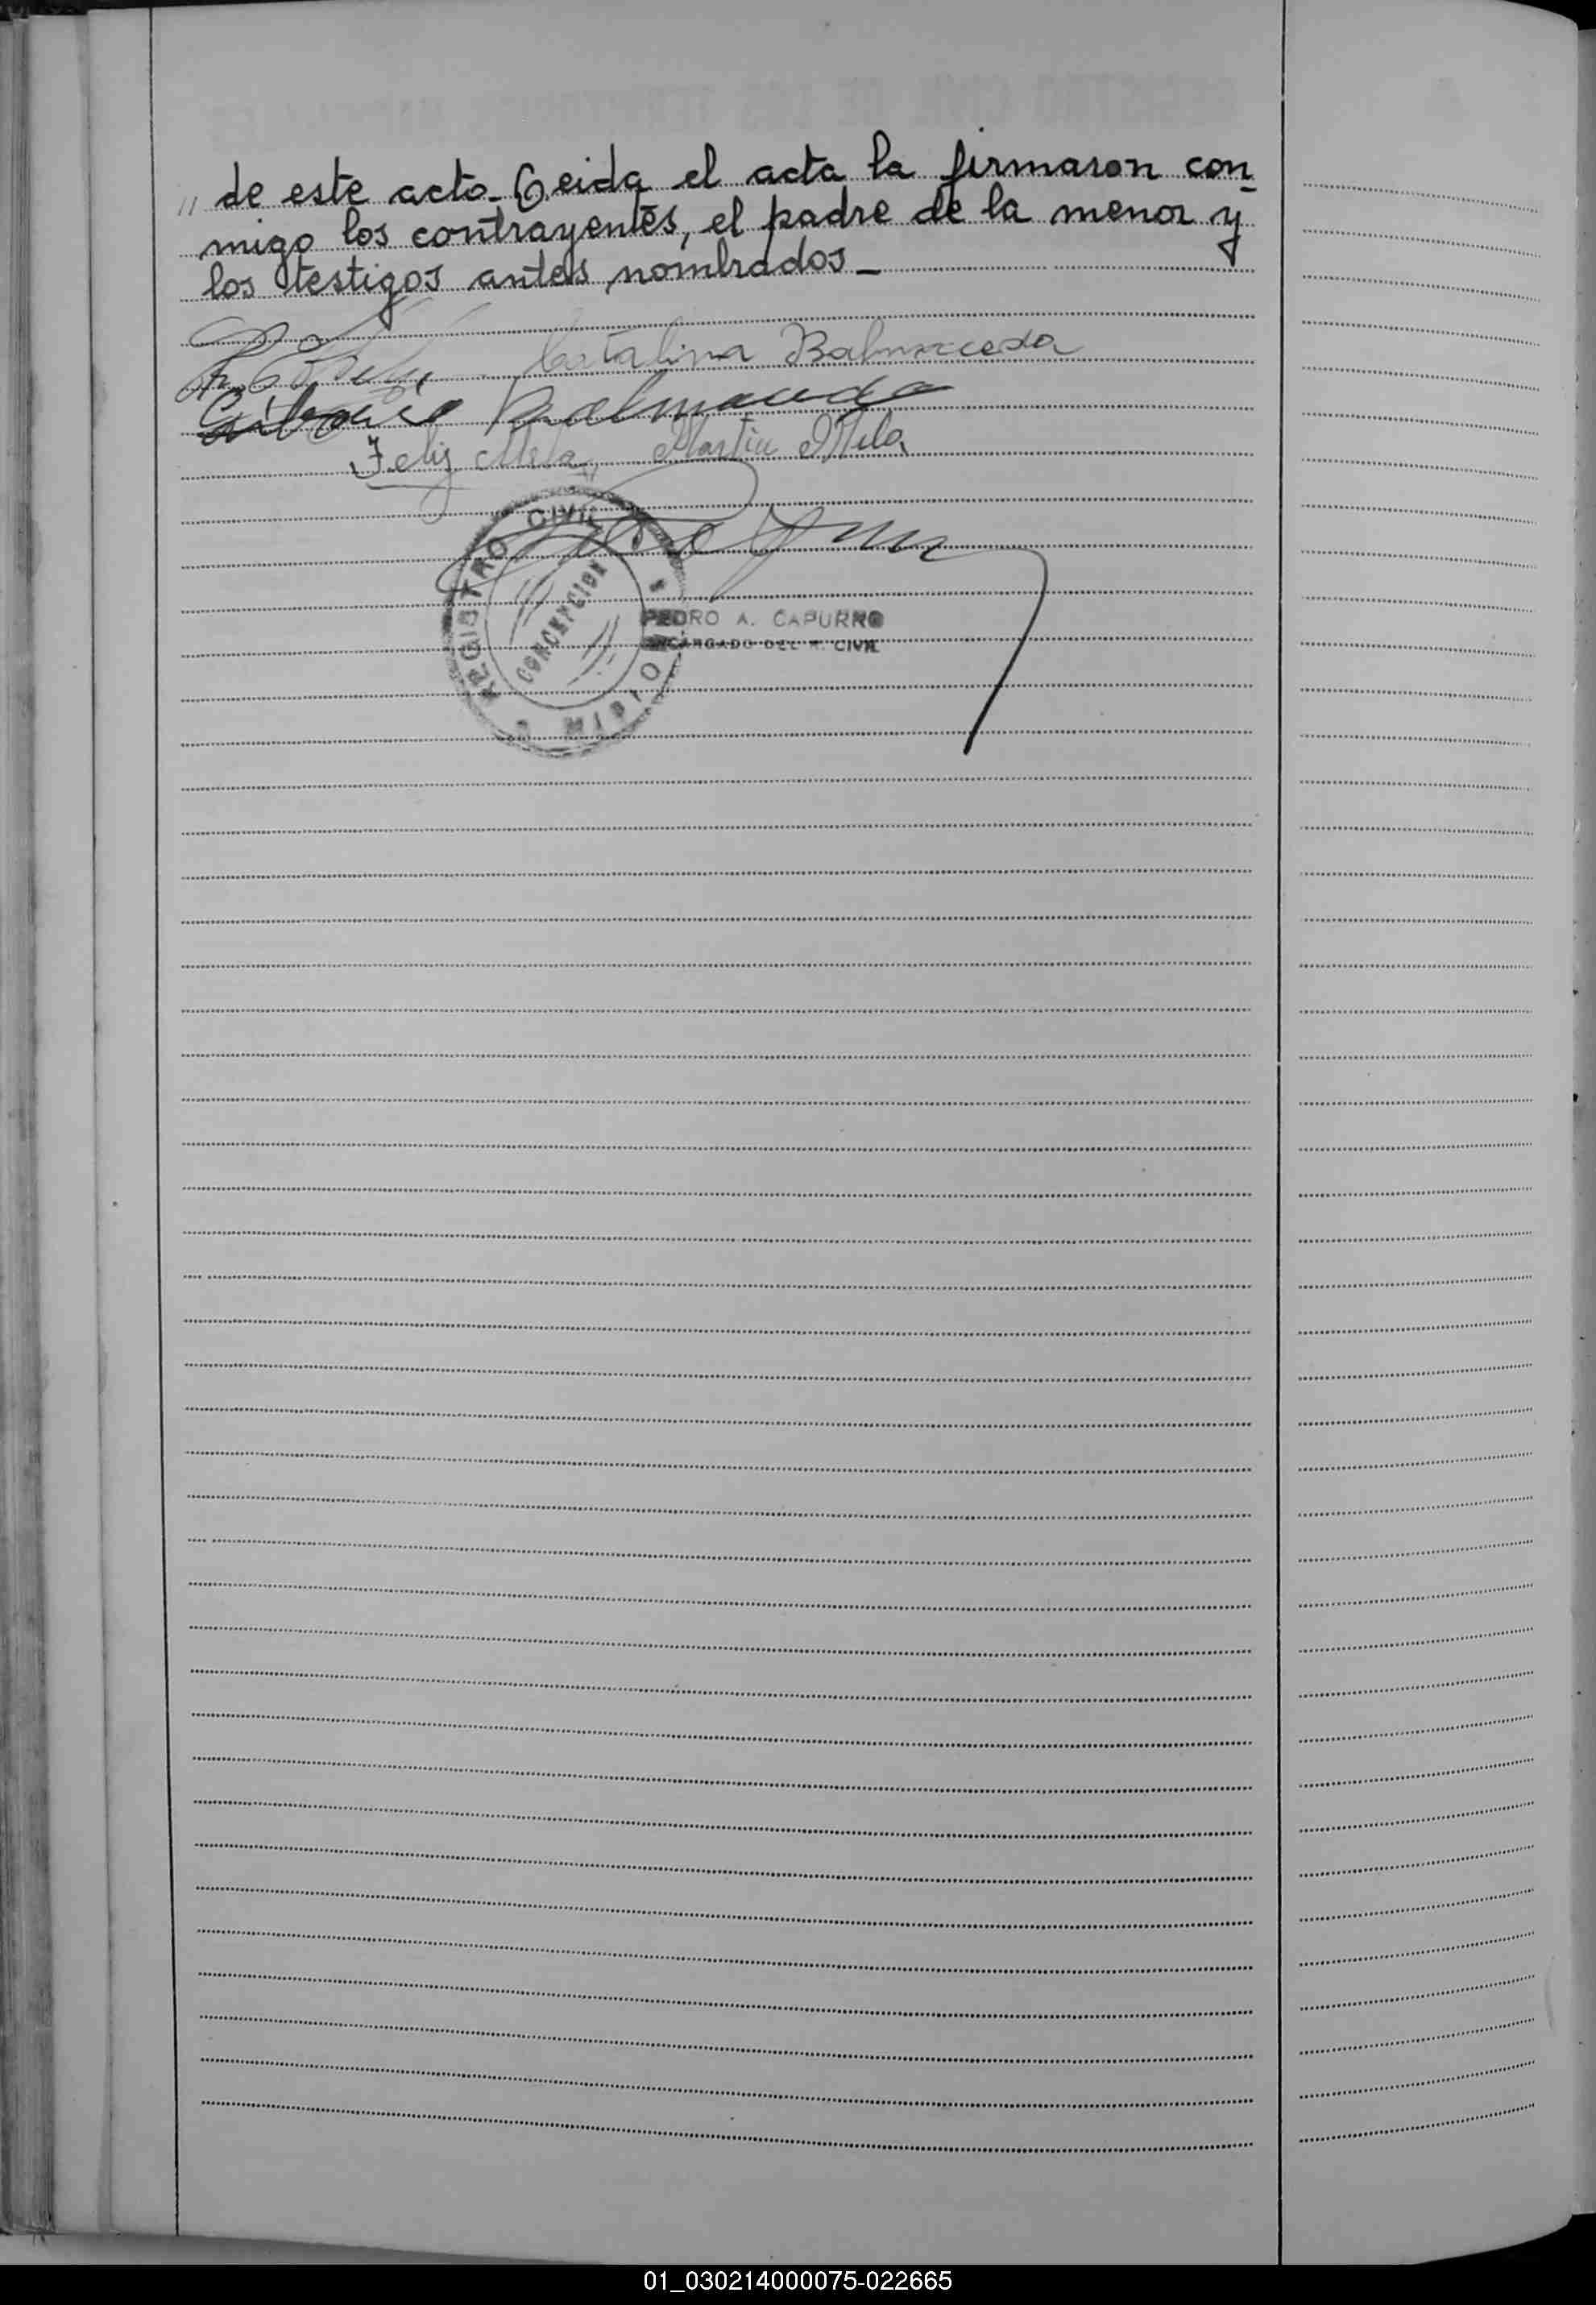 " de este acto_ Leida el acta la firmaron con_
migo los contrayentes, el padre de la menor y
los testigos antes nombrados_
Catalina Balmaceda
Balmaceda
Felis Mela Martin Mela
REGISTRO CIVIL
CONCEPCION
MISIONES
PEDRO A. CAPURRO
ENCARGADO DEL R. CIVIL
01_030214000075-022665